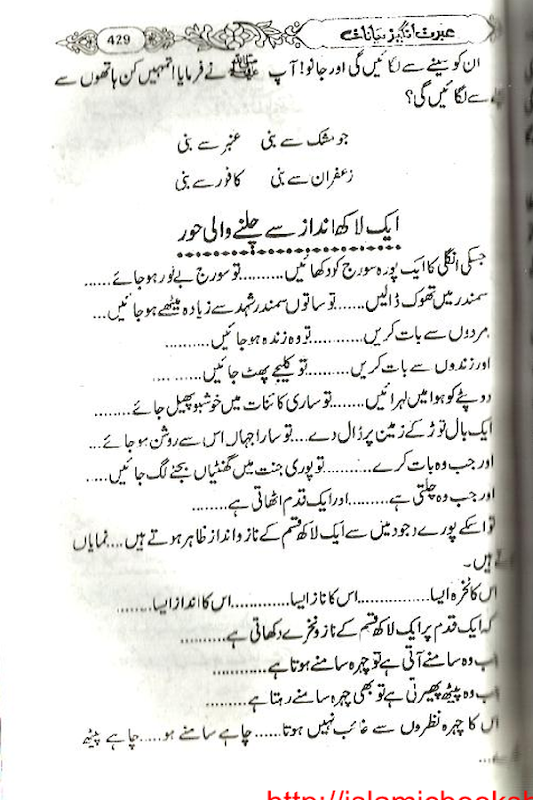 429
عبرت انگیز بیانات
ان کو سینے سے لگائیں گی اور جانو! آپ ﷺ نے فرمایا! تمہیں کن ہاتھوں سے
سے لگائیں گی؟
جو مشک سے بنی عنبر سے بنی
زعفران سے بنی کافور سے بنی
ایک لاکھ انداز سے چلنے والی حور
جسکی انگلی کا ایک پورہ سورج کو دکھائیں..........تو سورج بے نور ہو جائے......
سمندر میں تھوک ڈالیں......تو ساتوں سمندر شہد سے زیادہ میٹھے ہو جائیں...
مردوں سے بات کریں...........تو وہ زندہ ہو جائیں..........
اور زندوں سے بات کریں.........تو کلیجے پھٹ جائیں...... ....
دوپٹے کو ہوا میں لہرائیں........تو ساری کائنات میں خوشبو پھیل جائے........
ایک بال توڑ کے زمین پر ڈال دے....تو سارا جہاں اس سے روشن ہو جائے...
اور جب وہ بات کرے..........تو پوری جنت میں گھنٹیاں بجنے لگ جائیں.....
اور جب وہ چلتی ہے.........اور ایک قدم اٹھاتی ہے........
تو اسکے پورے وجود میں سے ایک لاکھ قسم کے ناز و انداز ظاہر ہوتے ہیں....نمایاں
ہوتے ہیں۔
اس کا نخرہ ایسا...............اس کا ناز ایسا............اس کا انداز ایسا.........
کہ ایک قدم پر ایک لاکھ قسم کے ناز و نخرے دکھاتی ہے..........
جب وہ سامنے آتی ہے تو چہرہ سامنے ہوتا ہے...........
جب وہ پیٹھ پھیرتی ہے تو بھی چہرہ سامنے رہتا ہے.........
اس کا چہرہ نظروں سے غائب نہیں ہوتا......چاہے سامنے ہو.....چاہے پیٹھ